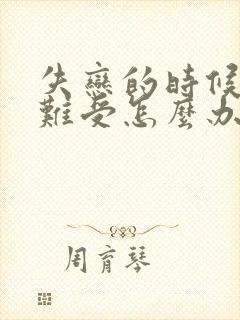 失戀的時候
難受怎麼办
周育琴